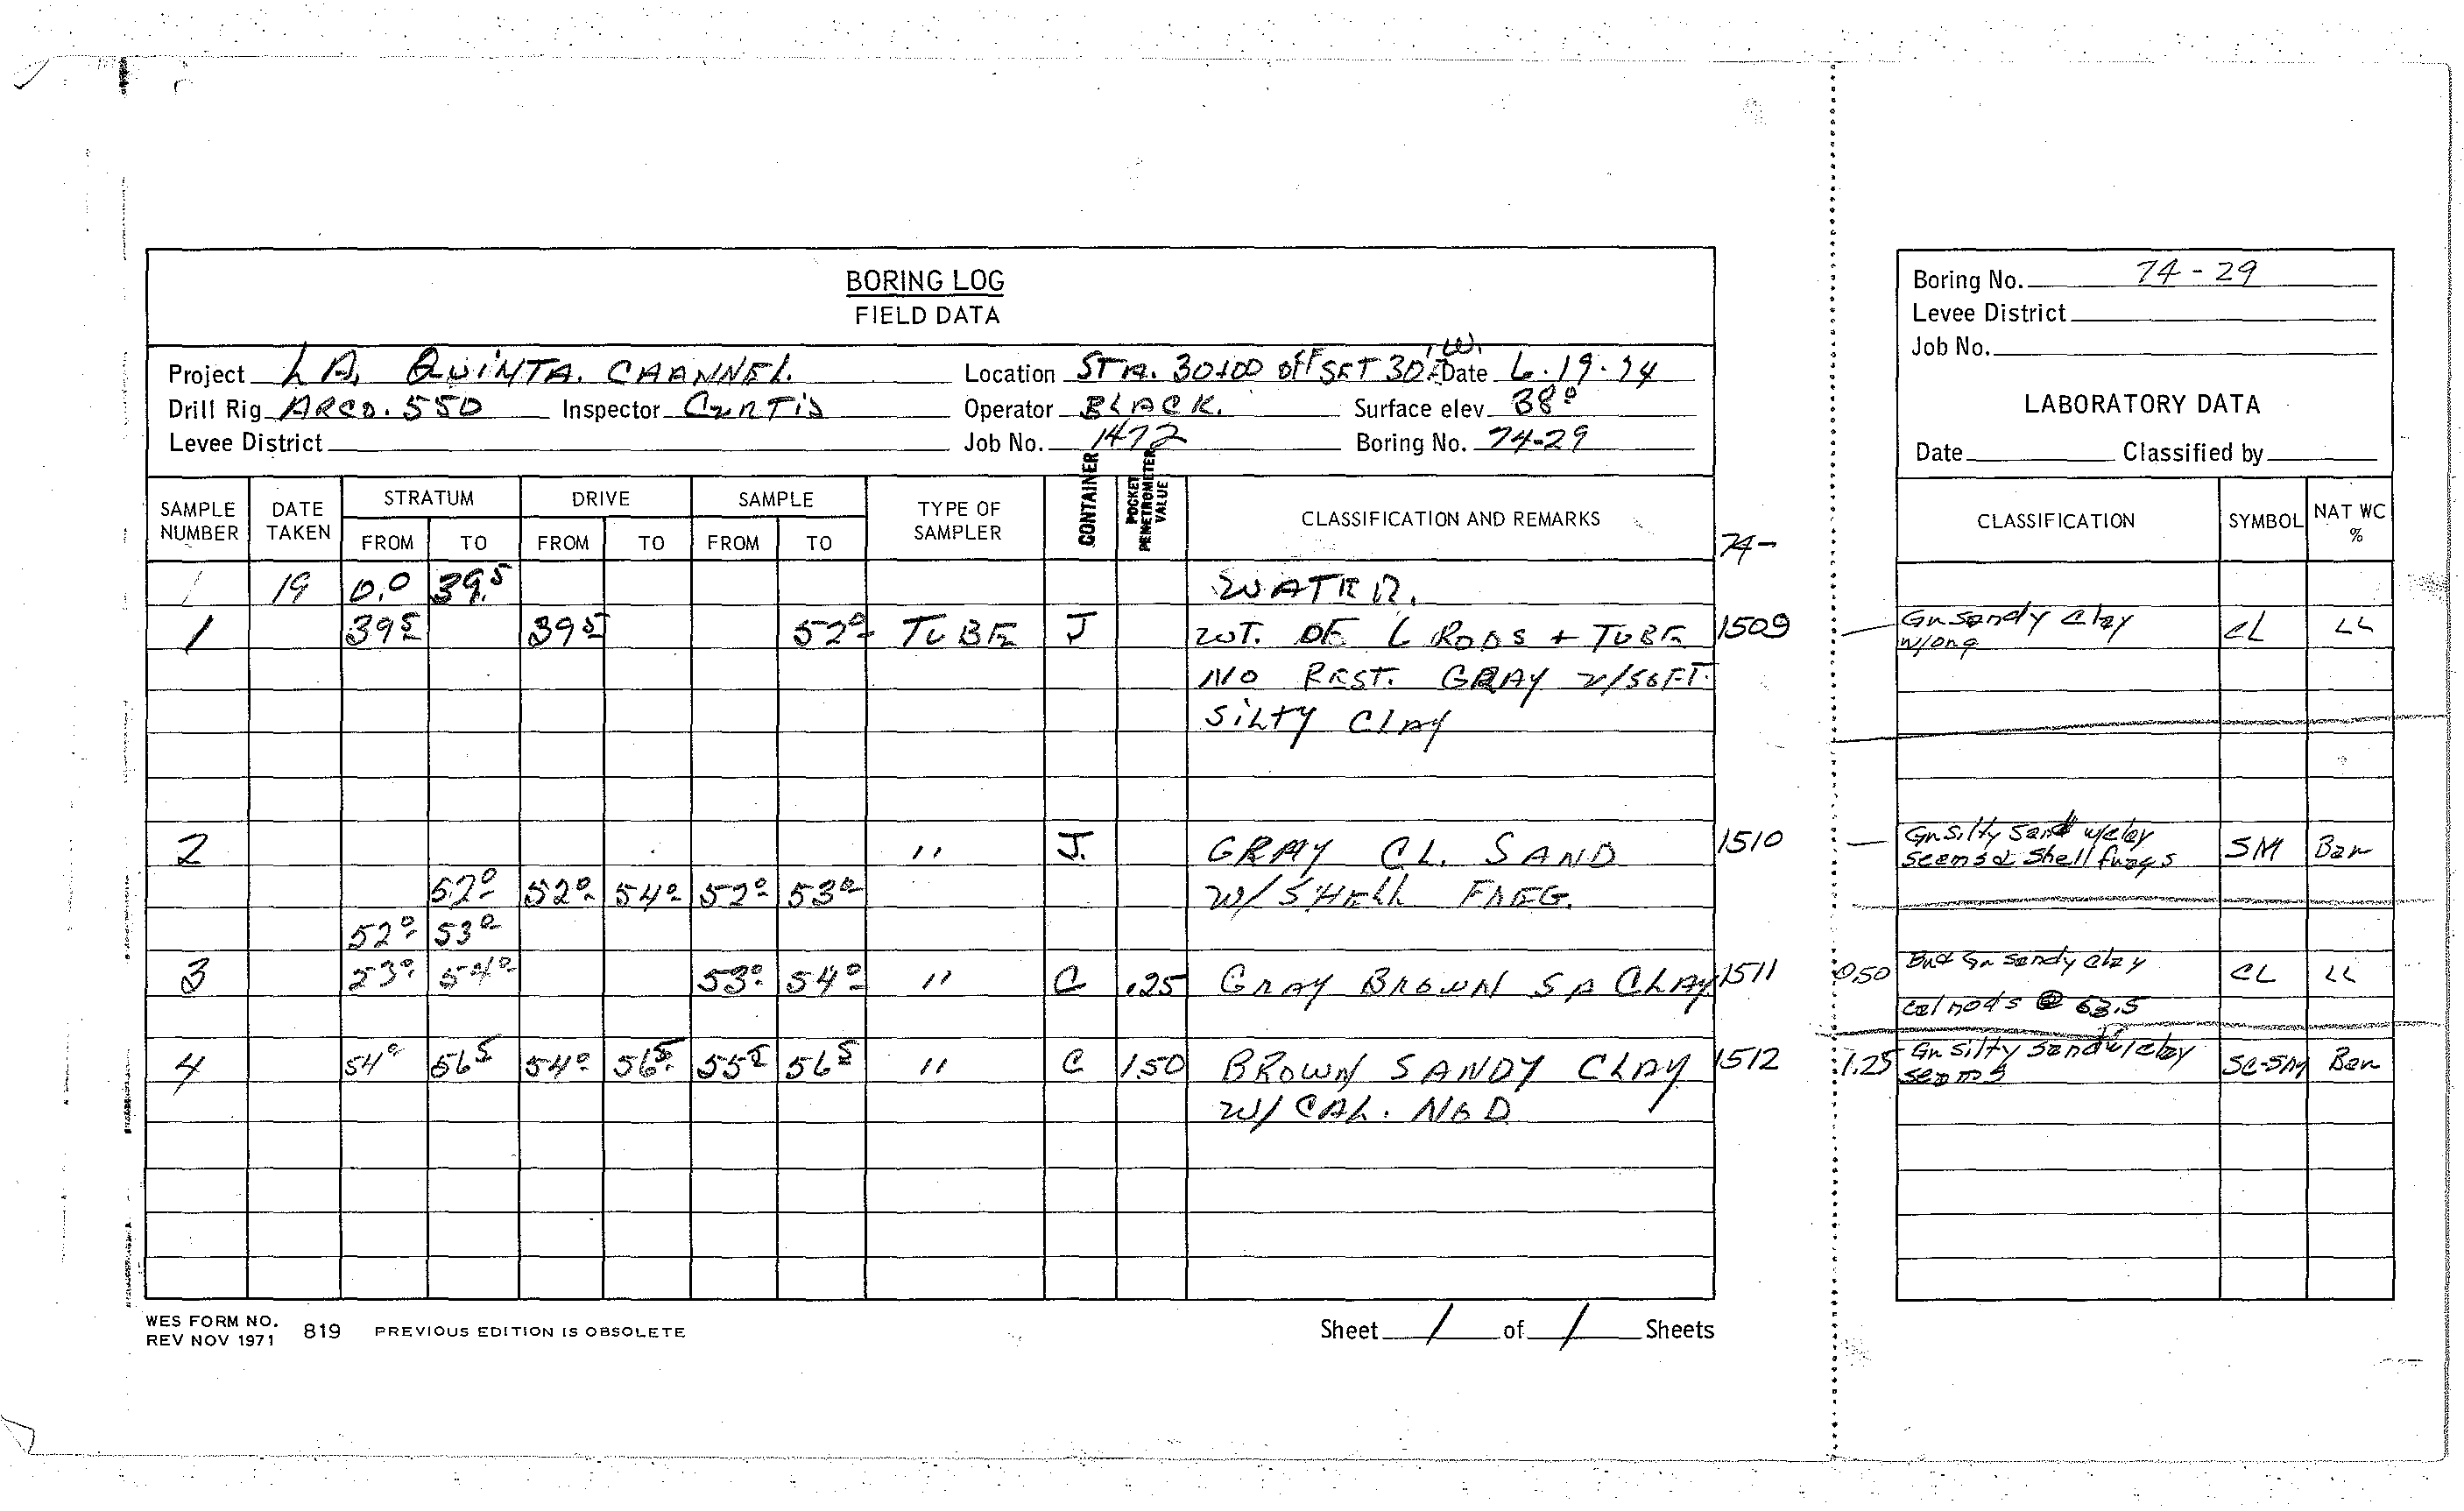 BORING LOG
FIELD DATA
Project LA QUINTA CHANNEL Location STA. 30+00 OFFSET 30' W. Date 6-19-74
Drill Rig ARCO. 550 Inspector CURTIS Operator BLACK. Surface elev. 38.0
Levee District Job No. 1472 Boring No. 74-29
SAMPLE NUMBER DATE TAKEN STRATUM FROM TO DRIVE FROM TO SAMPLE FROM TO TYPE OF SAMPLER CONTAINER POCKET PENETROMETER VALUE CLASSIFICATION AND REMARKS
74-
19 0.0 39.5 WATER.
1 39.5 39.5 52.0 TUBE J WT. OF RODS + TUBE 1509
NO REST. GRAY V/SOFT.
SILTY CLAY
2 " J. GRAY CL. SAND 1510
52.0 52.0 54.0 52.0 53.0 W/ SHELL FREG.
52.0 53.0
3 53.0 54.0 53.0 54.0 " C .25 GRAY BROWN SA CLAY 1511
4 54.0 56.5 54.0 56.5 55.5 56.5 " C 1.50 BROWN SANDY CLAY 1512
W/ CAL. NOD
WES FORM NO. 819 PREVIOUS EDITION IS OBSOLETE
REV NOV 1971
Sheet 1 of 1 Sheets
Boring No. 74-29
Levee District
Job No.
LABORATORY DATA
Date Classified by
CLASSIFICATION SYMBOL NAT WC %
Gn sandy clay CL LL
w/org
Gn silty sand w/clay SM Ban
seams & shell frags
0.50 Bn & Gn sandy clay CL LL
cal nods @ 53.5
1.25 Gn silty sand w/clay SC-SM Ban
seams